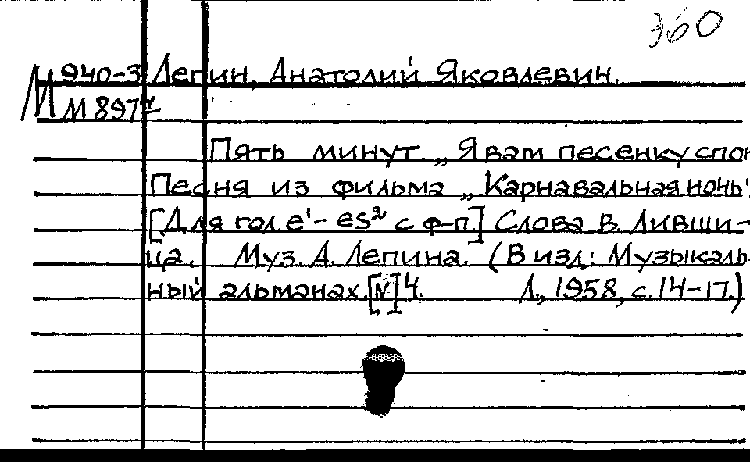 360
М 940-3 Лепин, Анатолий Яковлевич.
М 897
Пять минут. „Я вам песенку спо
Песня из фильма „Карнавальная ночь".
[Для гол. e'- es² с ф-п.] Слова В. Ливши-
ца. Муз. А. Лепина. (В изд.: Музыкаль-
ный альманах. [№] 4. Л., 1958, с. 14-17.)